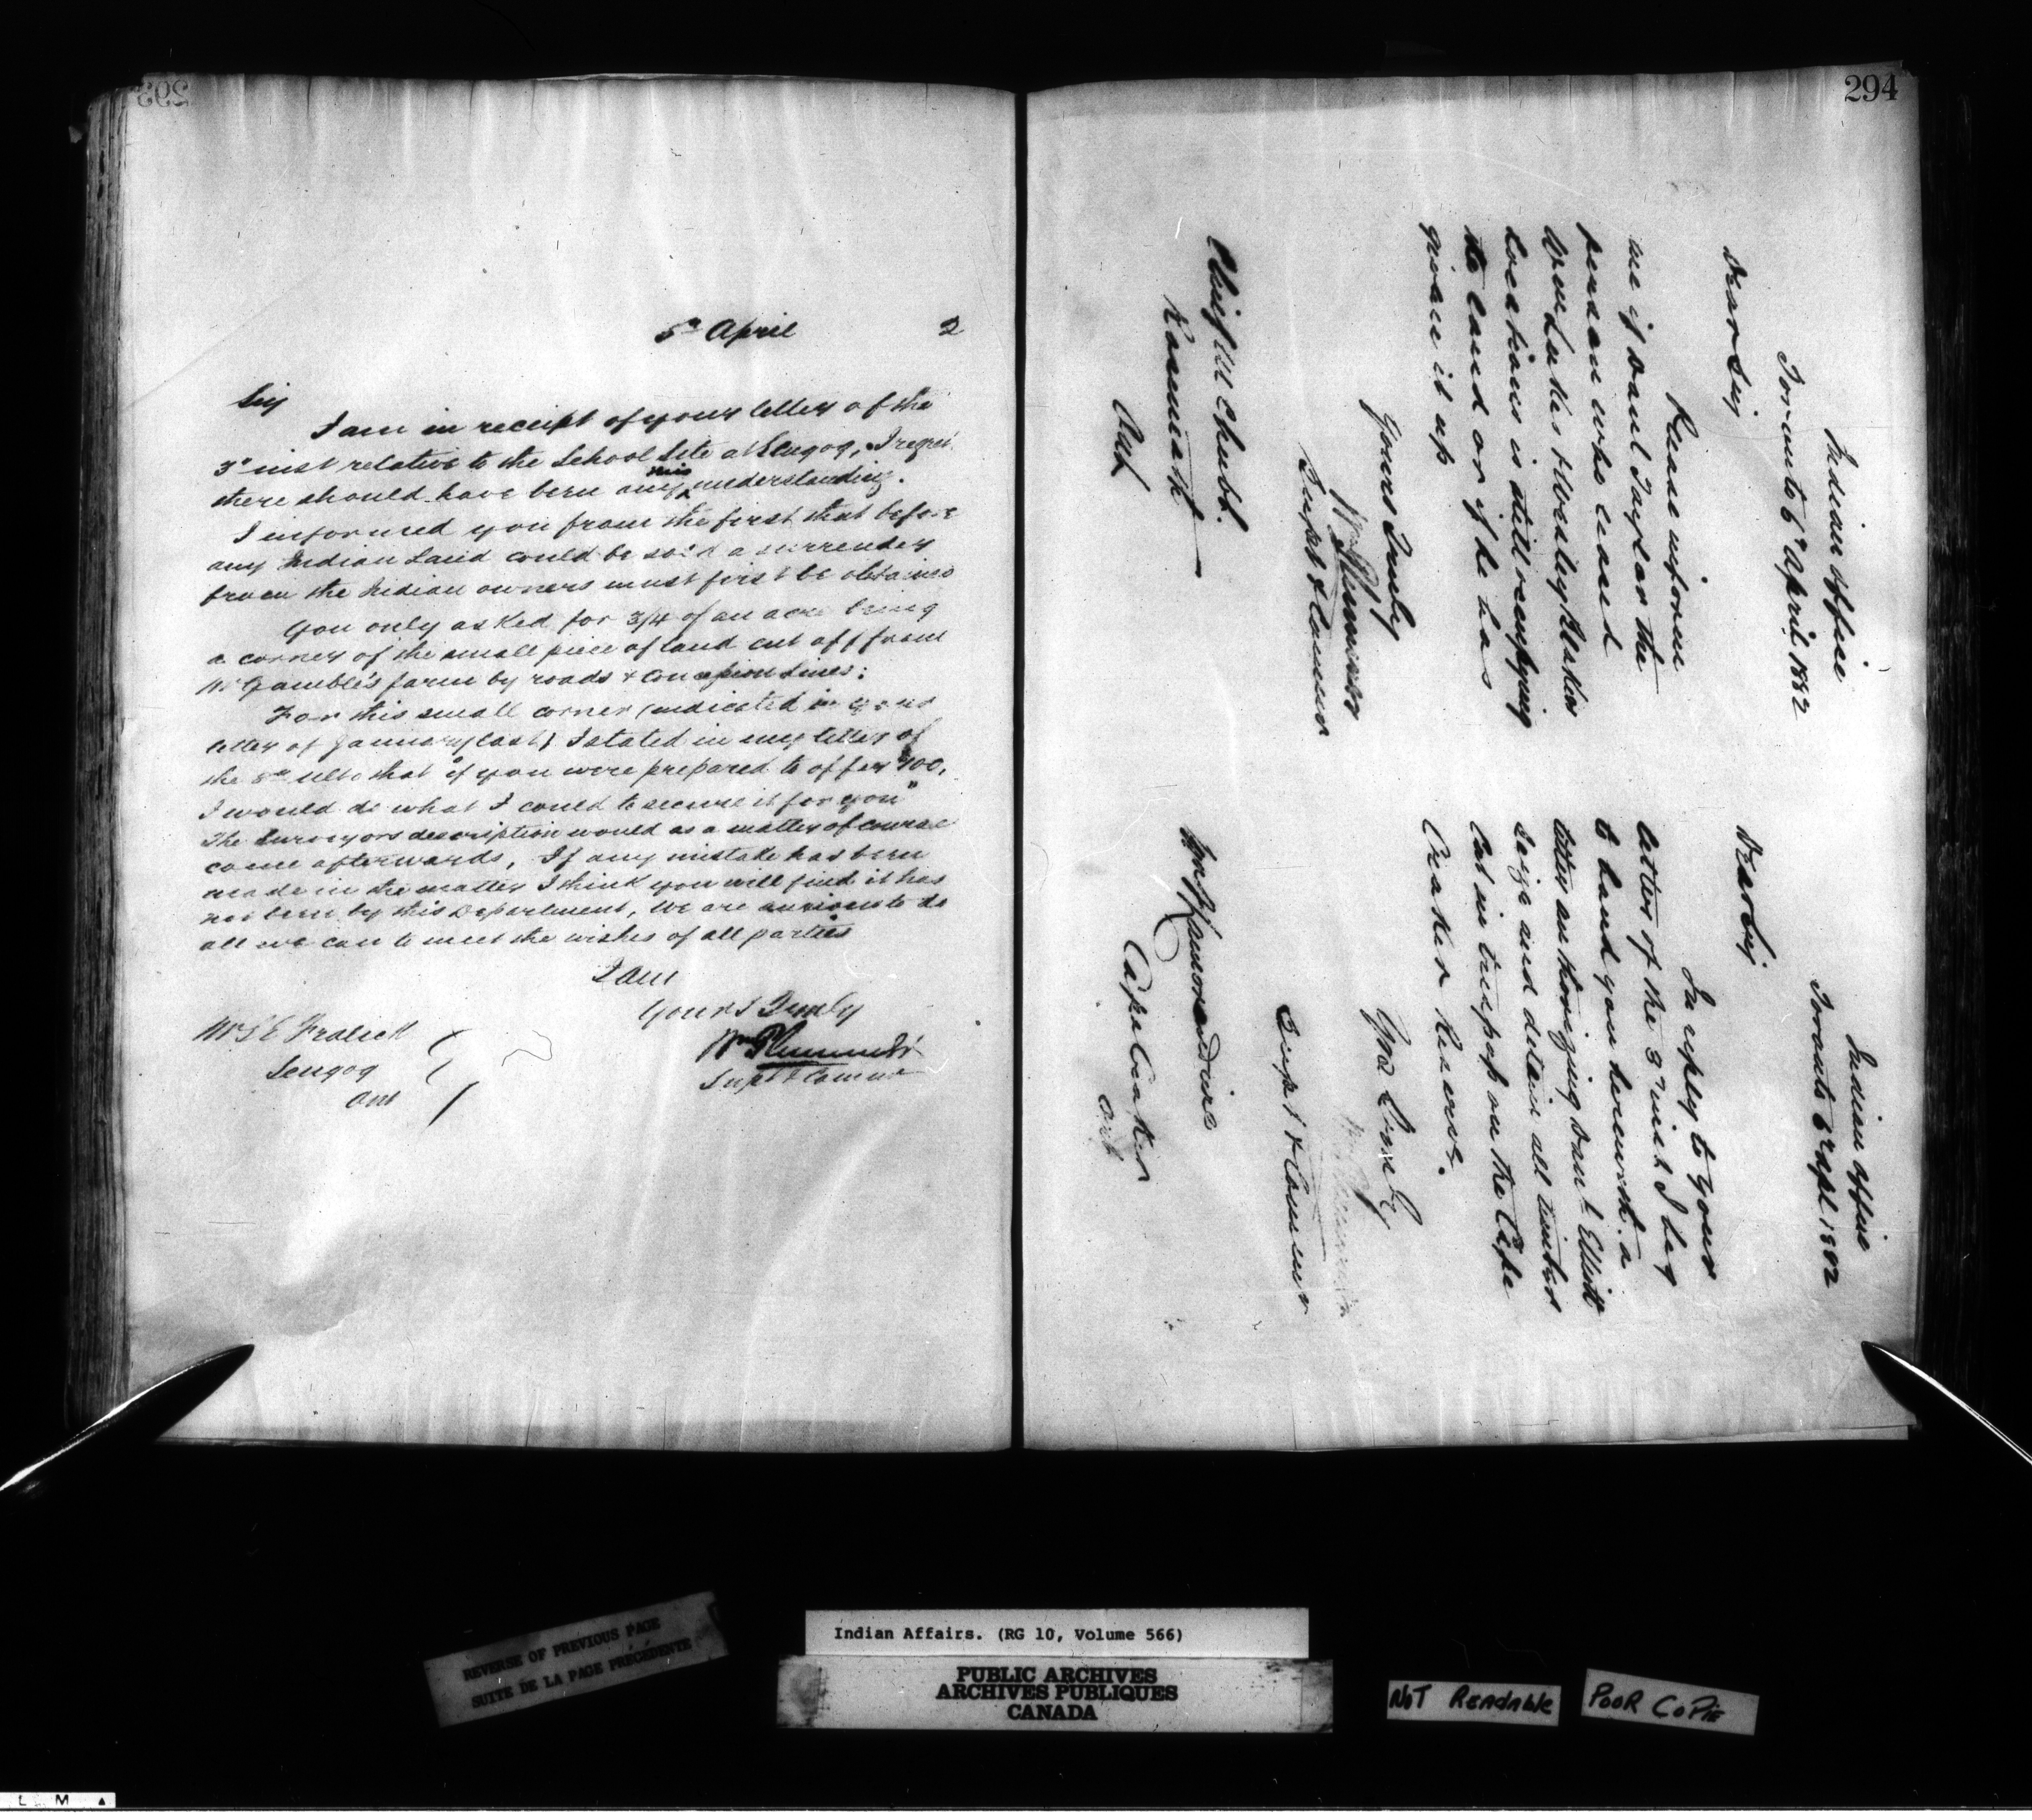 293
5th April 2
Sir
I am in receipt of your letter of the
3d inst relative to the School Site at Scugog, I regret
there should have been any misunderstanding.
I informed you from the first that before
any Indian Land could be sold a surrender
from the Indian owners must first be obtained
You only asked for 3/4 of an acre being
a corner of the small piece of land cut off from
Mr Gamble's farm by roads & Concession Lines:
For this small corner (indicated in your
letter of January last) I stated in my letter of
the 8th ulto that "if you were prepared to offer $100,
I would do what I could to secure it for you"
The Surveyors description would as a matter of course
come afterwards, If any mistake has been
made in the matter I think you will find it has
not been by this Department, We are anxious to do
all we can to meet the wishes of all parties
I am
Yours Truly
Wm Plummer
Supt & Commr
Mr S E Fralick
Scugog
Ont
294
Indian Office
Toronto 6th April 1882
Dear Sir
Please inform
me if Saml Taylor the
person who leased
locations is still occupying
the land or if he has
given it up
Yours Truly
Wm Plummer
Supt & Commr
Chief Wm Chubb.
Ont
Indian Office
Toronto 6th Apl 1882
Dear Sir
In reply to your
letter of the 3d inst I beg
to hand you herewith a
letter authorizing Saml Elliott
seize and detain all timber
Cut in trespass on the Cape
Croker Reserve.
Yrs Truly
Wm Plummer
Supt & Commr
Cape Croker
Ont
REVERSE OF PREVIOUS PAGE
SUITE DE LA PAGE PRÉCÉDENTE
Indian Affairs. (RG 10, Volume 566)
PUBLIC ARCHIVES
ARCHIVES PUBLIQUES
CANADA
NOT READABLE
POOR COPIE
L M